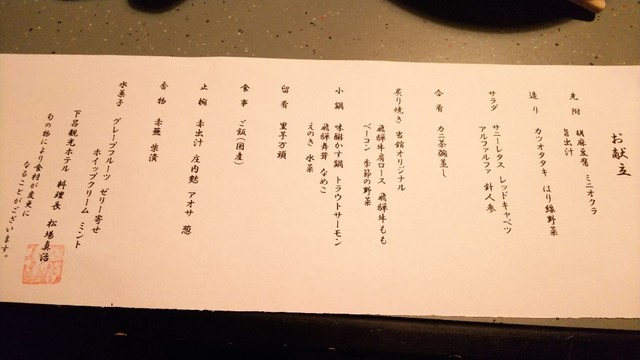 お献立
先附 胡麻豆腐 ミニオクラ
旨出汁
造り カツオタタキ はり緑野菜
サラダ サニーレタス レッドキャベツ
アルファルファ 針人参
合肴 カニ茶碗蒸し
炙り焼き 当館オリジナル
飛騨牛肩ロース 飛騨牛もも
ベーコン 季節の野菜
小鍋 味醂かす鍋 トラウトサーモン
飛騨舞茸 なめこ
えのき 水菜
留肴 里芋万頭
食事 ご飯(国産)
止椀 赤出汁 庄内麩 アオサ 葱
香物 赤蕪 柴漬
水菓子 グレープフルーツ ゼリー寄せ
ホイップクリーム ミント
下呂観光ホテル 料理長 松場真治
旬の物により食材が変更に
なることがございます。